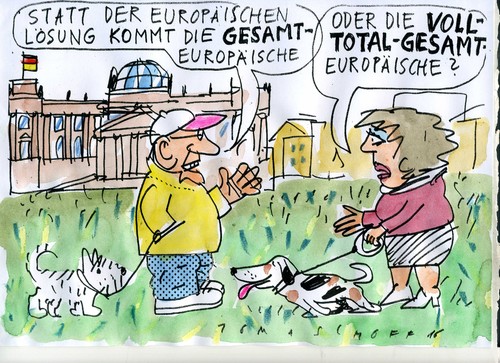 STATT DER EUROPÄISCHEN
LÖSUNG KOMMT DIE GESAMT-
EUROPÄISCHE
ODER DIE VOLL-
TOTAL-GESAMT-
EUROPÄISCHE?